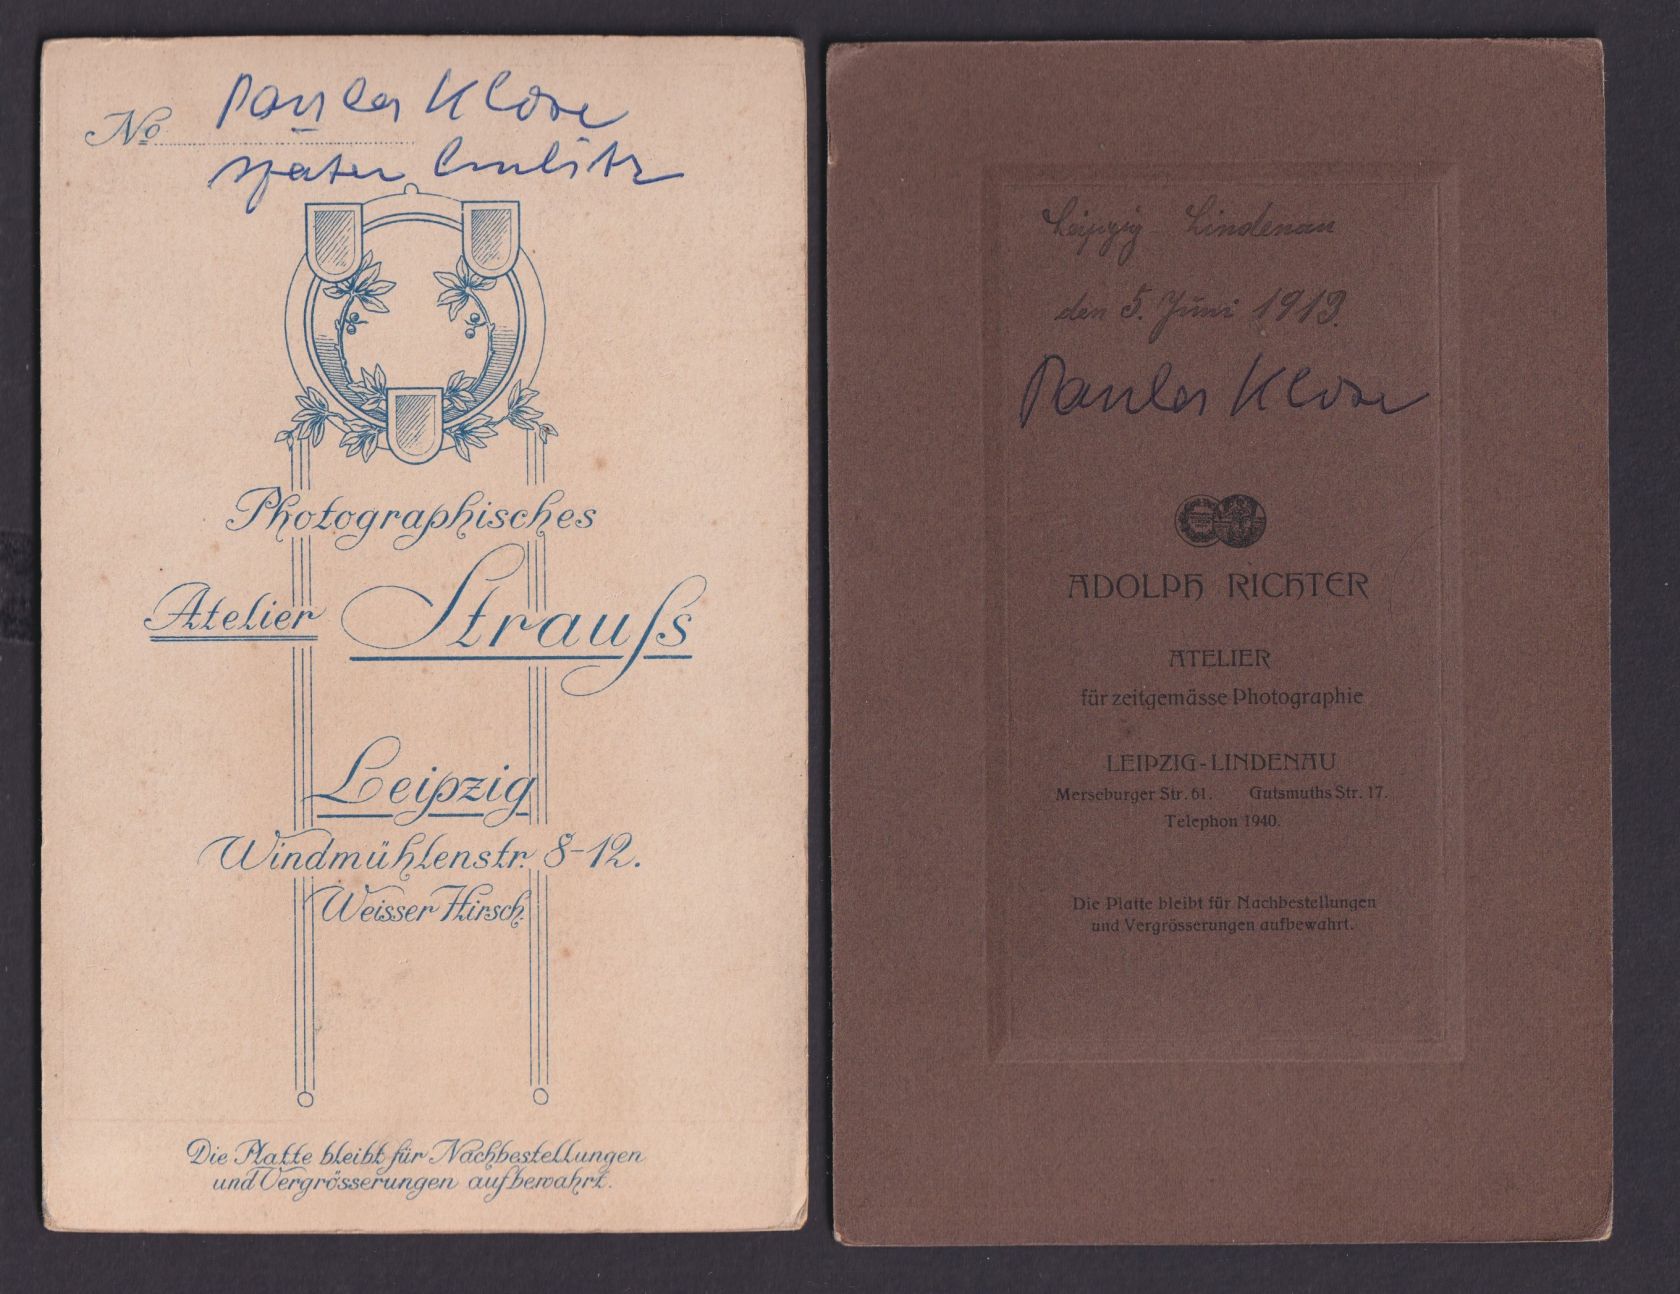 No
Paula Klose
später
Photographisches
Atelier Strauſs
Leipzig
Windmühlenstr. 8-12.
Weisser Hirsch.
Die Platte bleibt für Nachbestellungen
und Vergrösserungen aufbewahrt.
Leipzig Lindenau
den 5. Juni 1913.
Paula Klose
ADOLPH RICHTER
ATELIER
für zeitgemässe Photographie
LEIPZIG-LINDENAU
Merseburger Str. 61. Gutsmuths Str. 17.
Telephon 1940.
Die Platte bleibt für Nachbestellungen
und Vergrösserungen aufbewahrt.